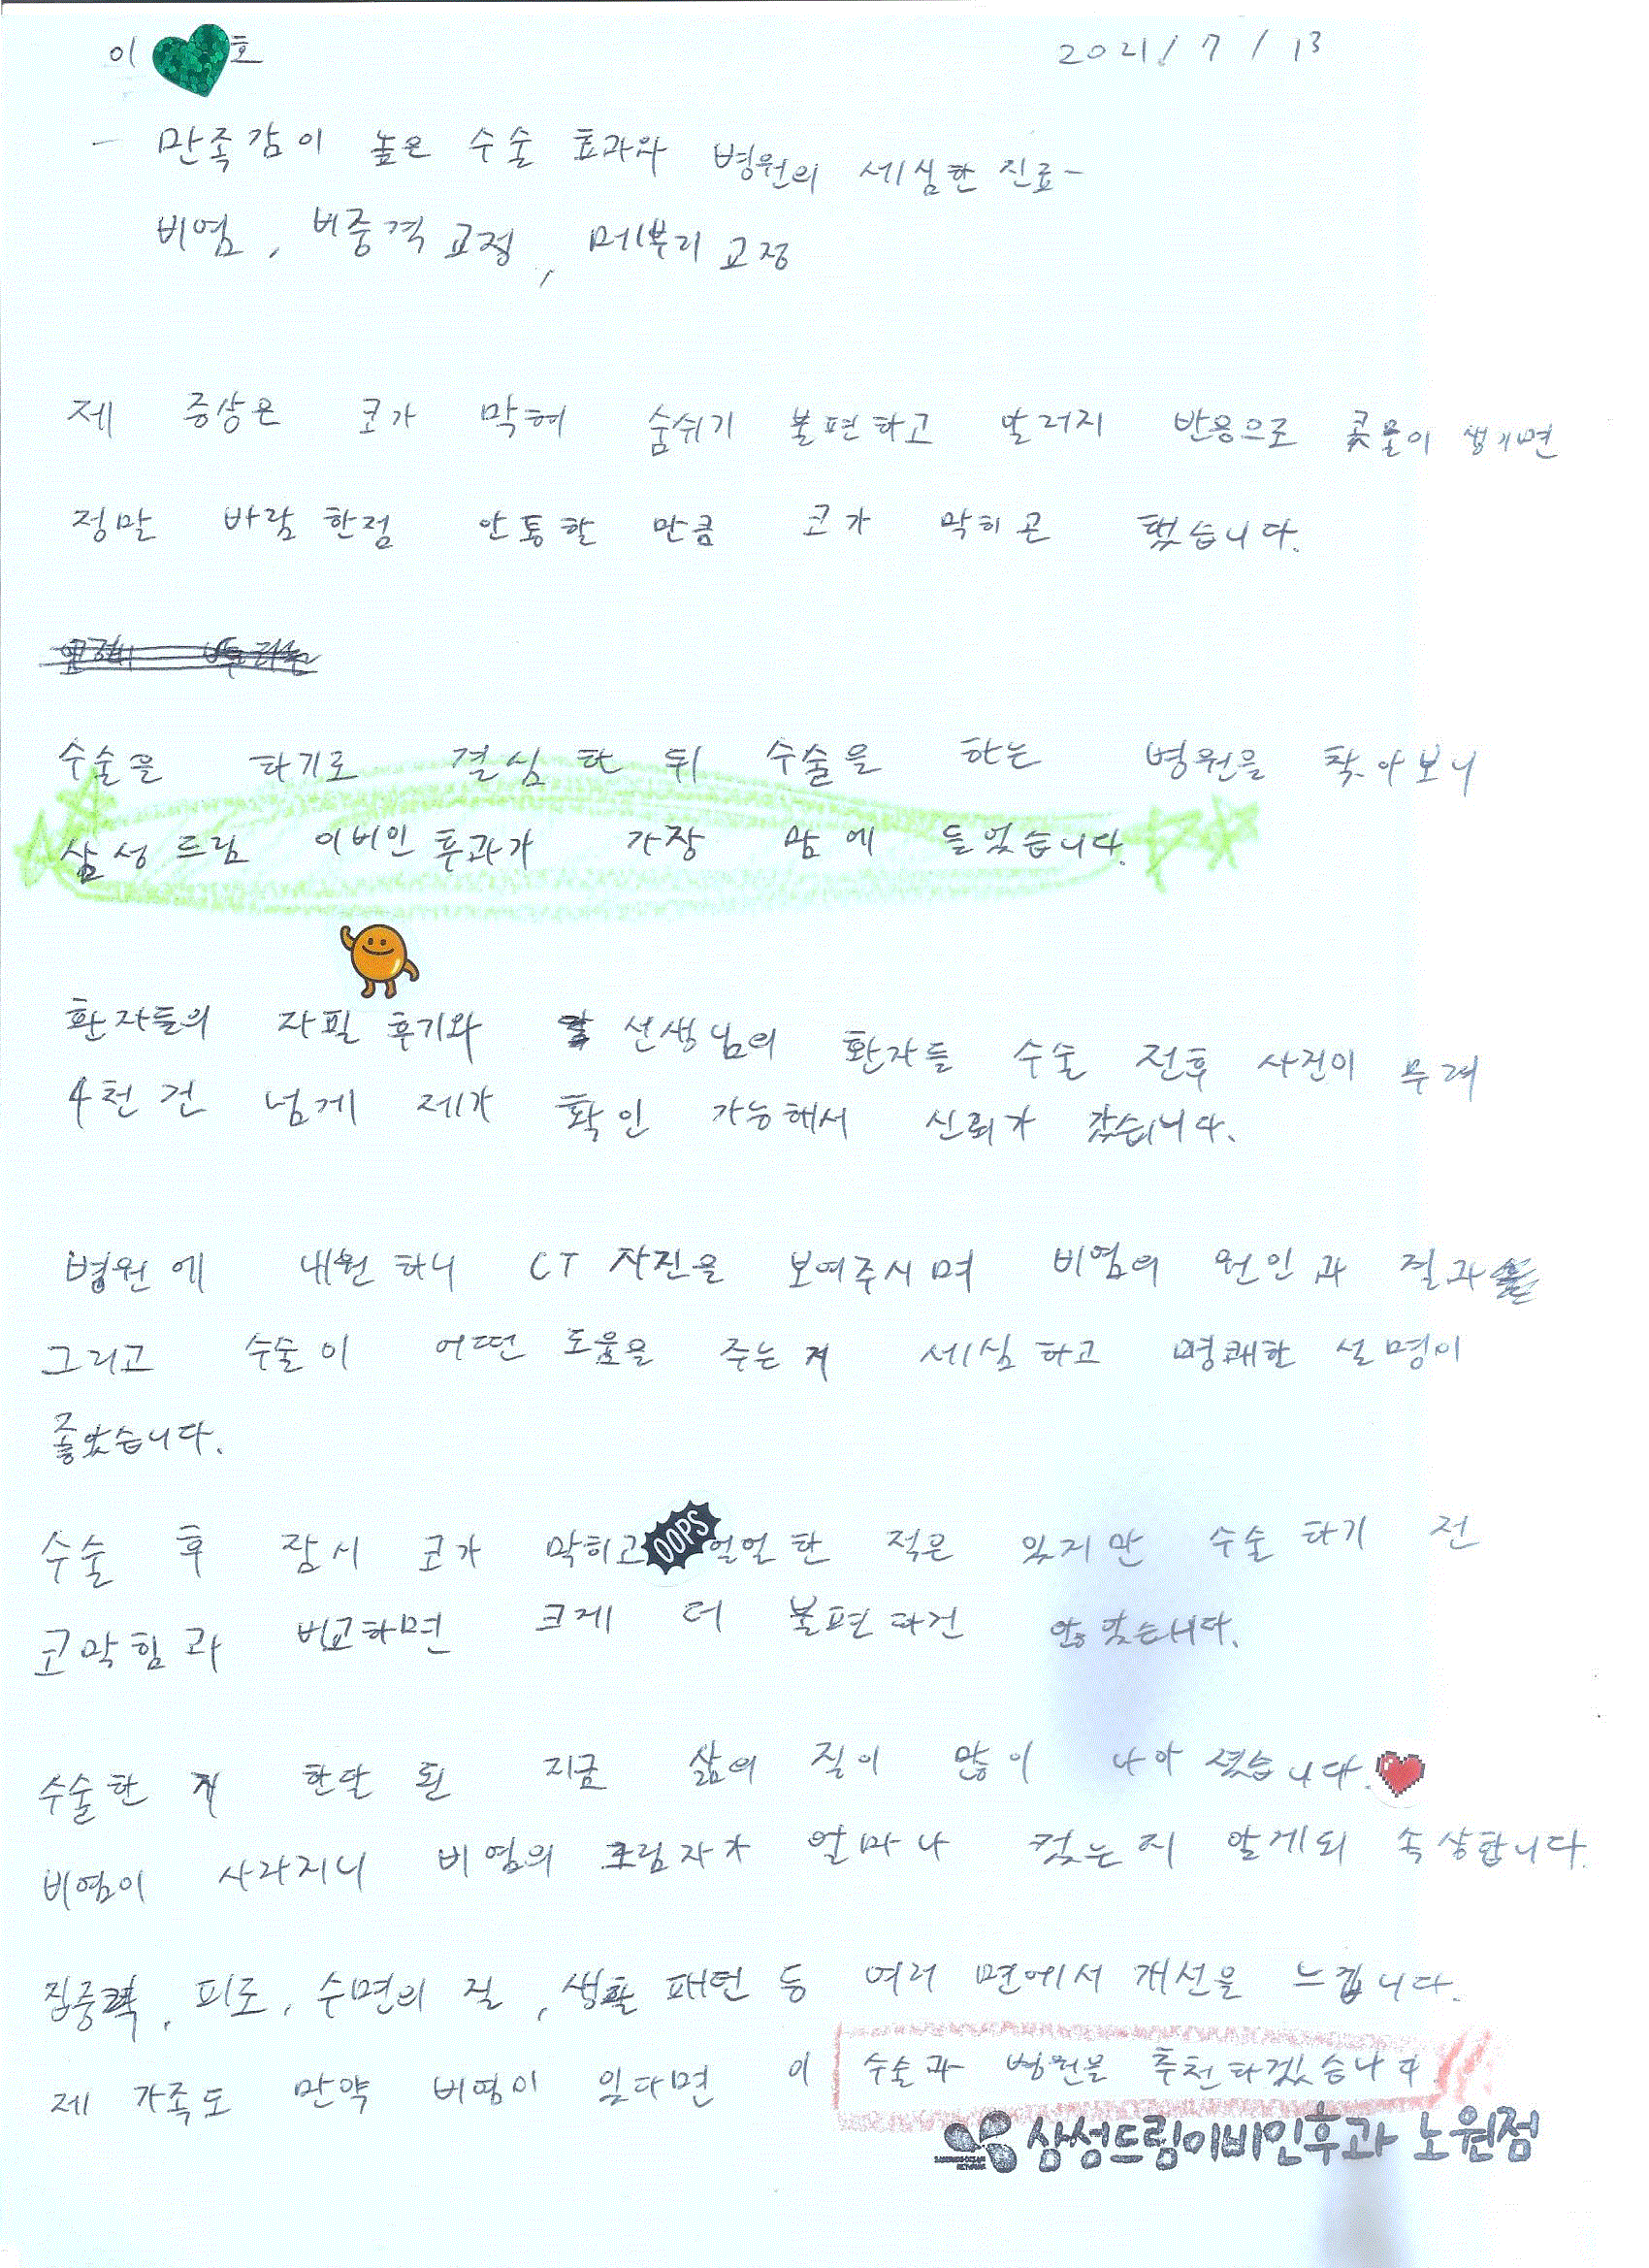 이 호 2021/7/13
- 만족감이 높은 수술 효과와 병원의 세심한 진료-
비염, 비중격 교정, 메부리 교정
제 증상은 코가 막혀 숨쉬기 불편하고 알러지 반응으로 콧물이 생기면
정말 바람 한점 안통할 만큼 코가 막히곤 했습니다.
수술을 하기로 결심한 뒤 수술을 하는 병원을 찾아보니
삼성드림 이비인후과가 가장 맘에 들었습니다.
환자들의 자필 후기와 선생님의 환자들 수술 전후 사진이 무려
4천건 넘게 제가 확인 가능해서 신뢰가 갔습니다.
병원에 내원하니 CT 사진을 보여주시며 비염의 원인과 결과
그리고 수술이 어떤 도움을 주는지 세심하고 명쾌한 설명이
좋았습니다.
수술 후 잠시 코가 막히고 OOPS 얼얼한 적은 있지만 수술하기 전
코막힘과 비교하면 크게 더 불편하건 않았습니다.
수술한 지 한달 된 지금 삶의 질이 많이 나아졌습니다.
비염이 사라지니 비염의 그림자가 얼마나 컸는지 알게되 속상합니다.
집중력, 피로, 수면의 질, 생활 패턴 등 여러 면에서 개선을 느낍니다.
제 가족도 만약 비염이 있다면 이 수술과 병원을 추천하겠습니다.
삼성드림이비인후과 노원점